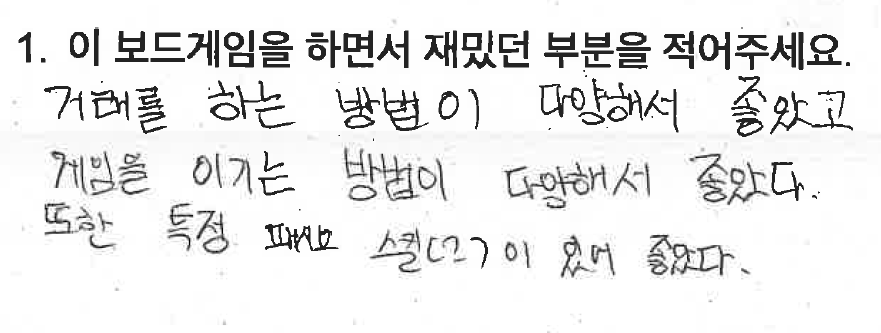 1. 이 보드게임을 하면서 재밌던 부분을 적어주세요.
거래를 하는 방법이 다양해서 좋았고
게임을 이기는 방법이 다양해서 좋았다.
또한 특정 스킬(?)이 있어 좋았다.